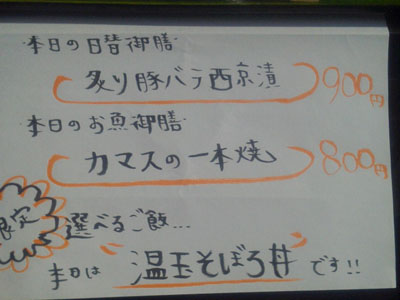 本日の日替御膳
炙り豚バラ西京漬 900円
本日のお魚御膳
カマスの一本焼 800円
限定
選べるご飯...
本日は "温玉そぼろ丼" です!!